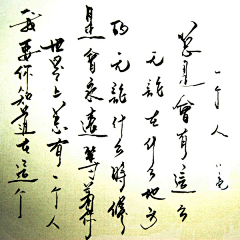 一个人
总是会有这么
无论在什么地方
的无论什么时候
是会永远等着你
世界上总有一个人
我要你知道在这个